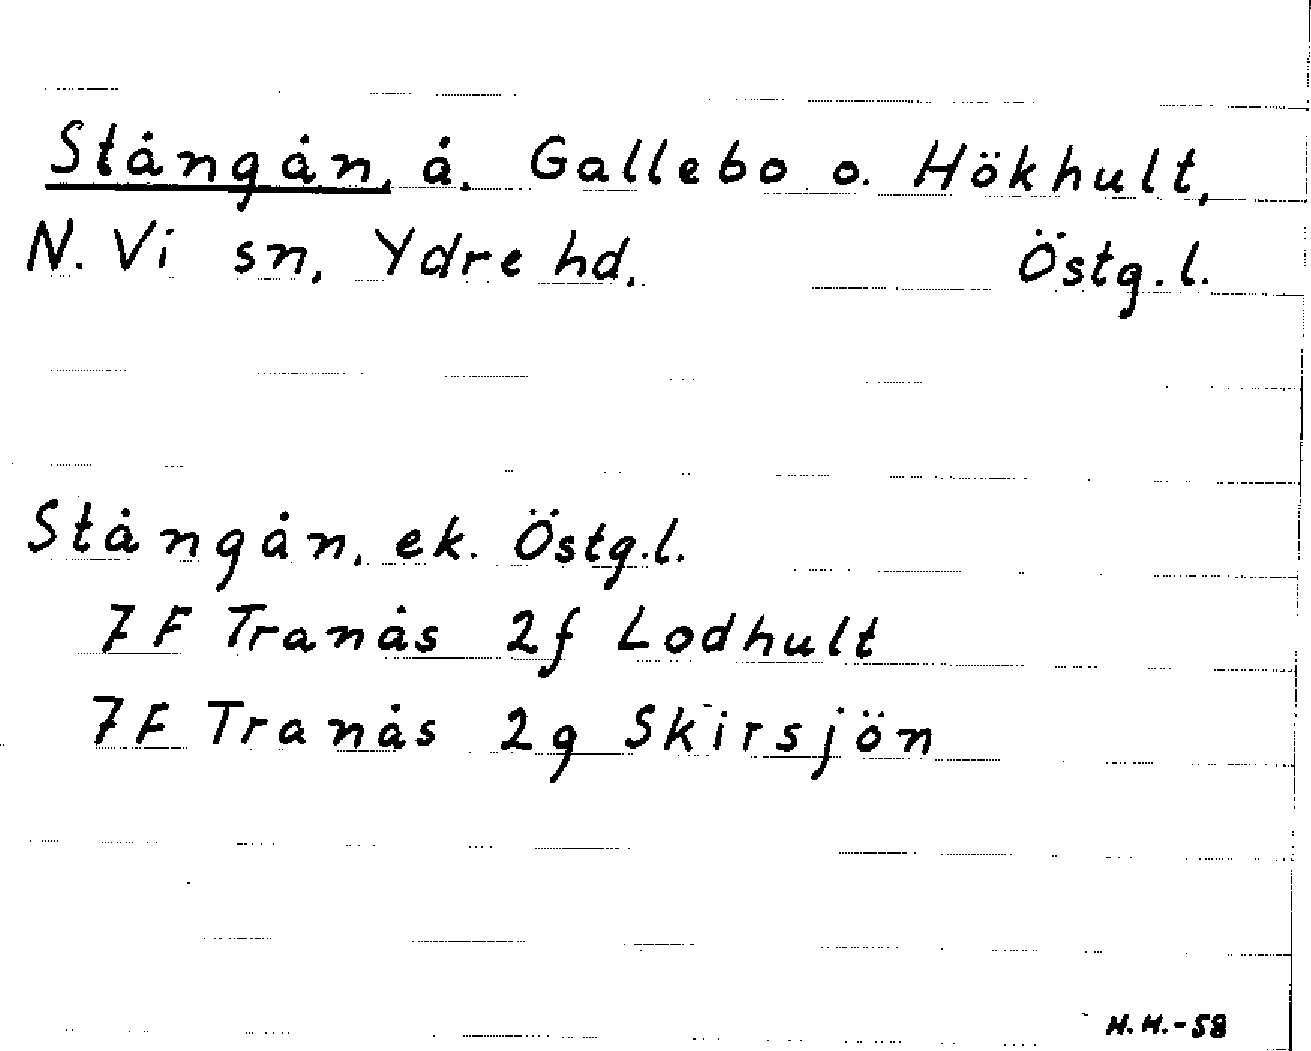 Stångån, å, Gallebo o. Hökhult,
N. Vi sn, Ydre hd. Östg.l.
Stångån, ek. Östg.l.
7F Tranås 2f Lodhult
7F Tranås 2g Skirsjön
H.H.-58